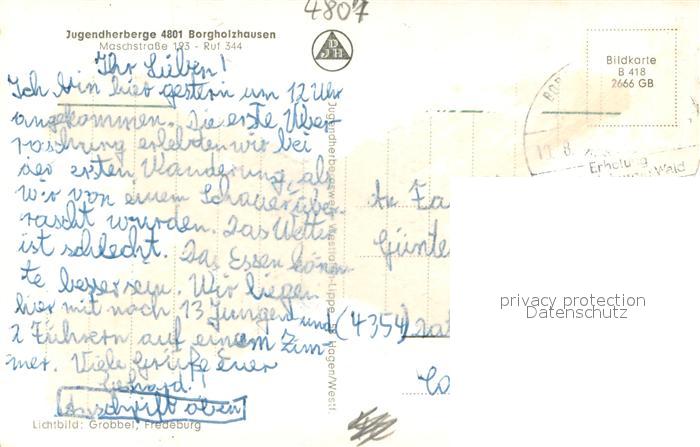 4807
Jugendherberge 4801 Borgholzhausen
Maschstraße 193 - Ruf 344
DJH
Bildkarte
B 418
2666 GB
Erholung
Wald
Ihr Lieben!
Ich bin hier gestern um 12 Uhr
angekommen. Die erste Über-
raschung erlebten wir bei
der ersten Wanderung, als
wir von einem Schauer über-
rascht wurden. Das Wetter
ist schlecht. Das Essen könn-
te besser sein. Wir liegen
hier mit noch 13 Jungen und
2 Führern auf einem Zim-
mer. Viele Grüße Euer
Anschrift oben
An Fa
Günte
(4354) Dat
privacy protection
Datenschutz
Lichtbild: Grobbel, Fredeburg